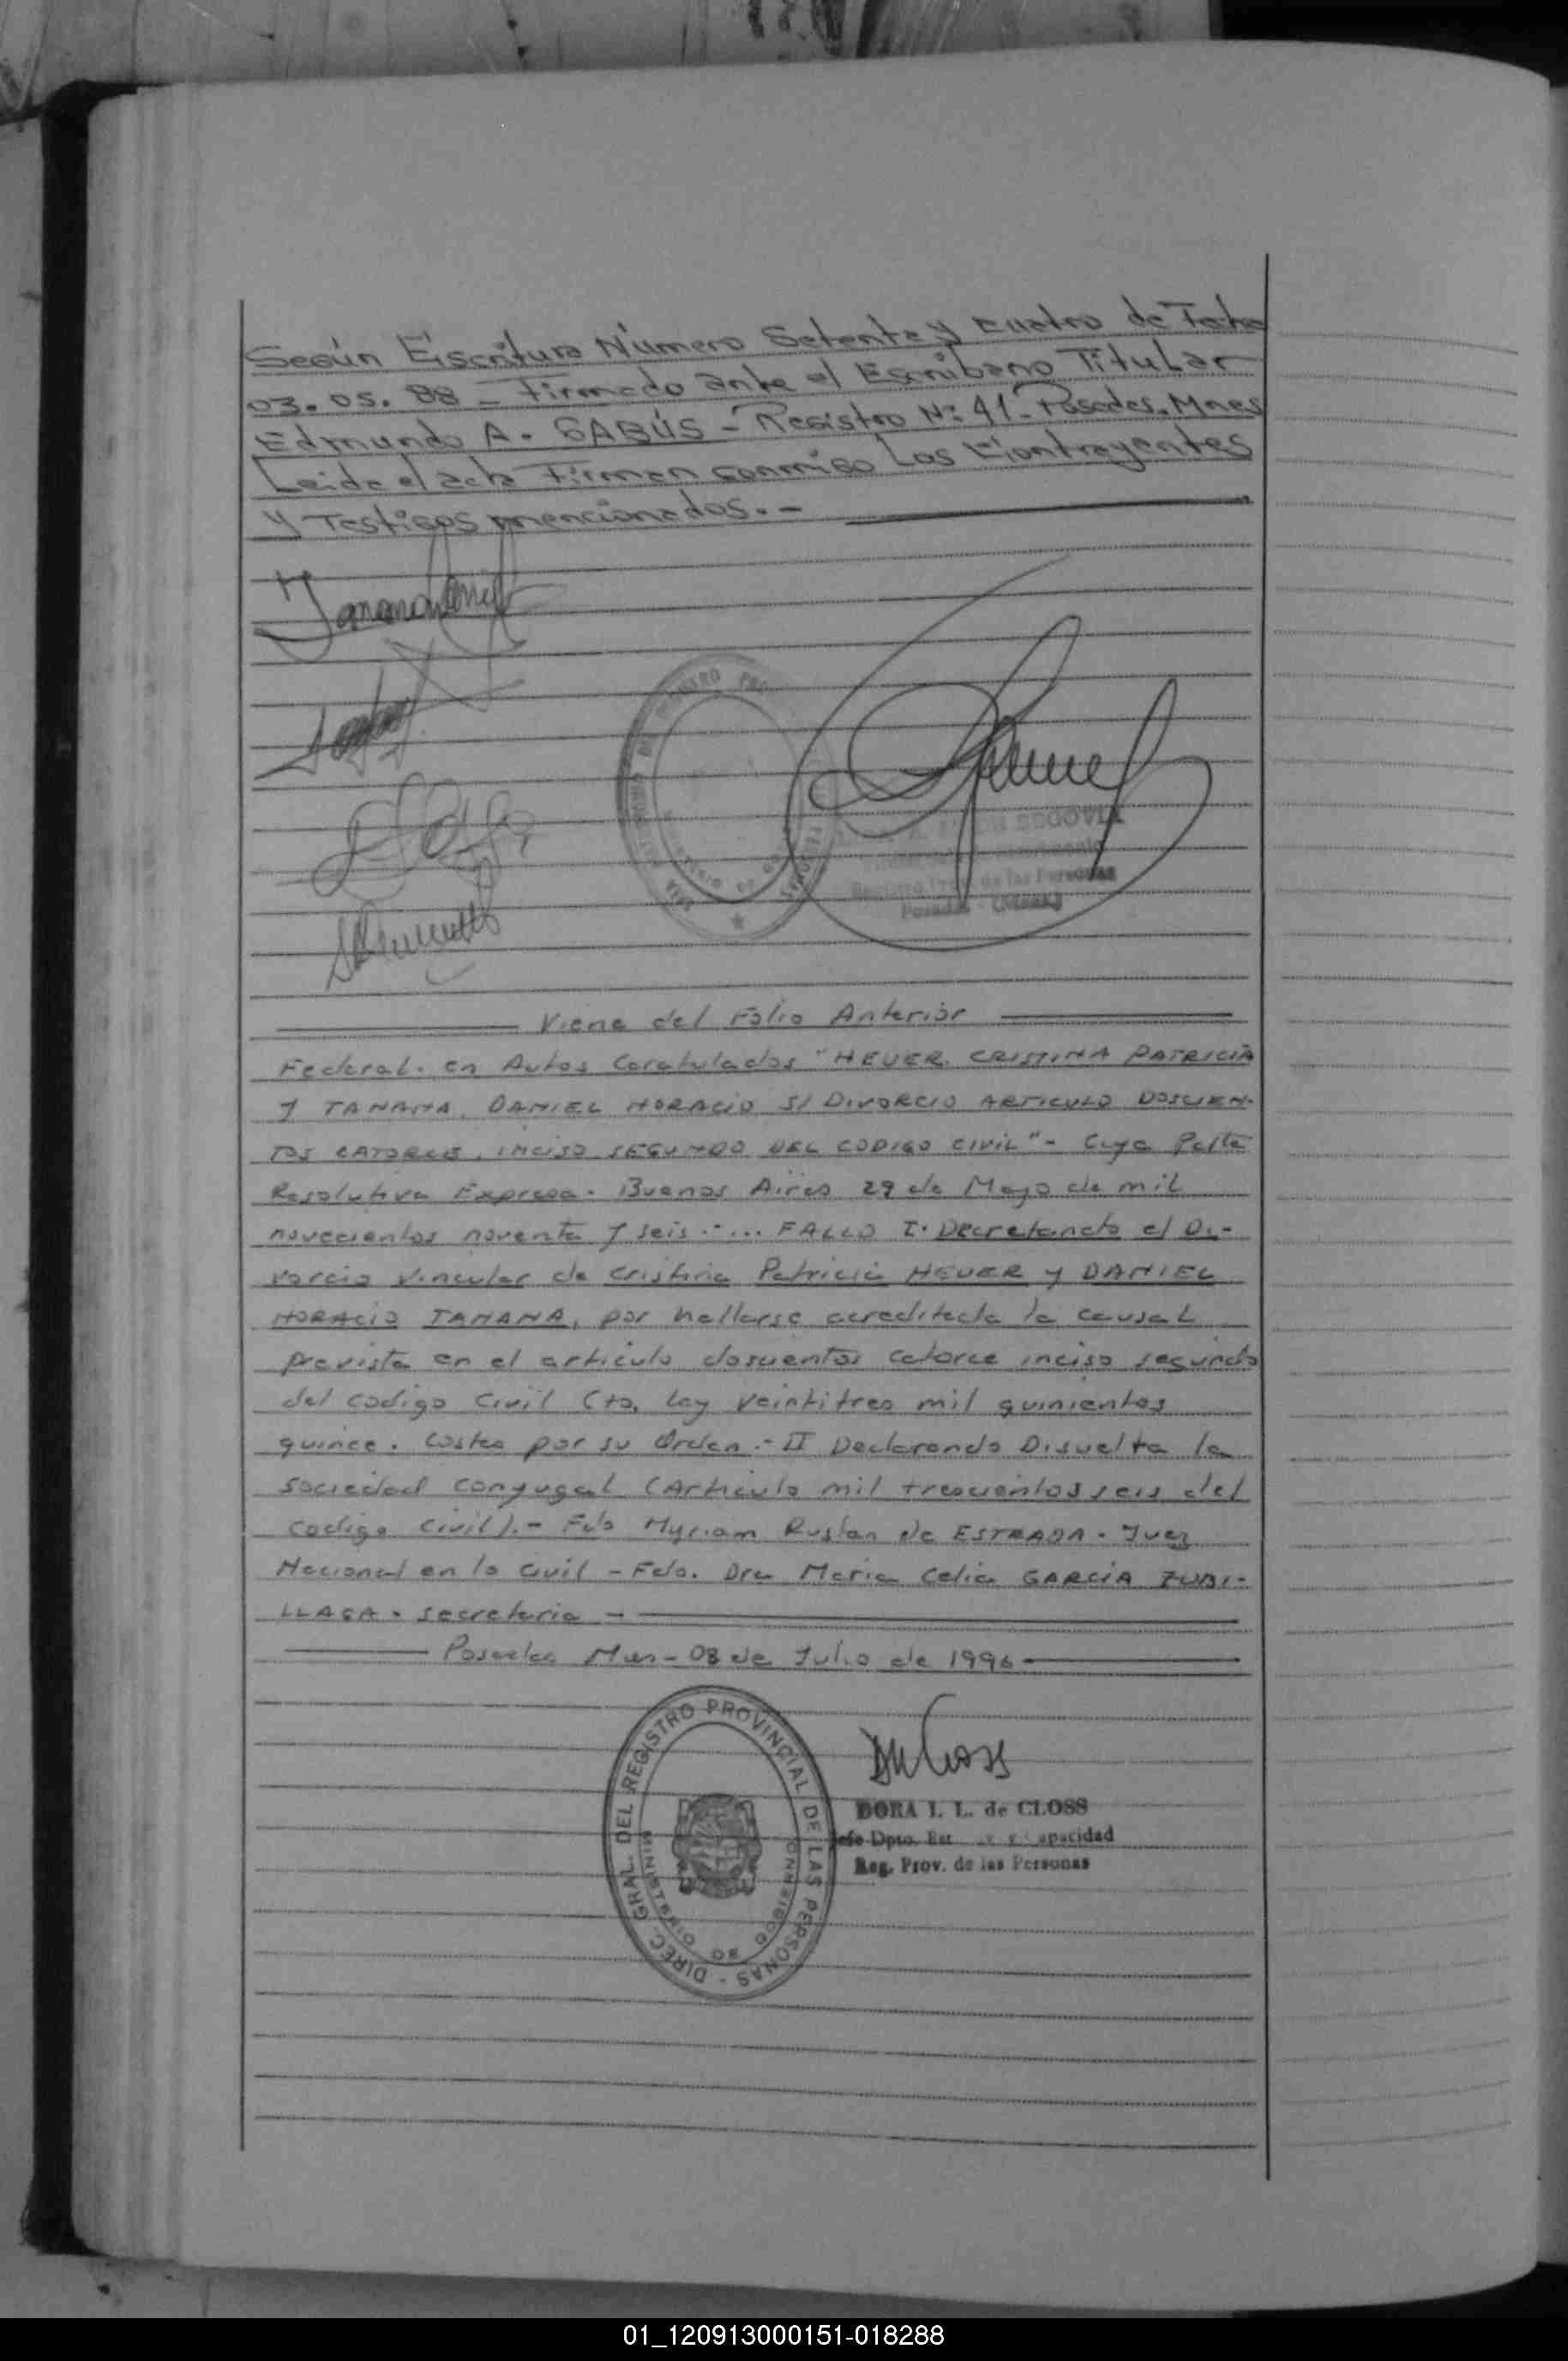 Según Escritura Número Setenta y cuatro de Fecha
03.05.88 - Firmado ante el Escribano Titular
Edmundo A. GABÚS - Registro Nº 41 - Posadas. Mnes
Leida el acta Firman conmigo Los Contrayentes
y Testigos mencionados. -
SEGOVIA
Registro Prov. de las Personas
Posadas - (Mnes)
Viene del Folio Anterior
Federal. en Autos Caratulados "HEUER. CRISTINA PATRICIA
y TANAHA. DANIEL HORACIO S/ DIVORCIO ARTICULO DOSCIEN-
TOS CATORCE. INCISO SEGUNDO DEL CODIGO CIVIL" - Cuya Parte
Resolutiva Expresa. Buenos Aires 29 de Mayo de mil
novecientos noventa y seis. -... FALLO I. Decretando el Di-
vorcio Vincular de Cristina Patricia HEUER y DANIEL
HORACIO TANAHA, por hallarse acreditada la causal
prevista en el articulo doscientos catorce inciso segundo
del codigo Civil (to. Ley Veintitres mil quinientos
quince. Costas por su Orden. - II Declarando Disuelta la
sociedad conyugal (Articulo mil trescientos seis del
Codigo Civil). - Fdo Myriam Rustan de ESTRADA. Juez
Nacional en lo Civil - Fdo. Dra Maria Celia GARCIA ZUBI-
LLAGA. Secretaria -
Posadas Mnes - 08 de Julio de 1996
DIREC. GRAL. DEL REGISTRO PROVINCIAL DE LAS PERSONAS
MINISTERIO DE GOBIERNO
DORA I. L. de CLOSS
Jefe Dpto. Est y Capacidad
Reg. Prov. de las Personas
01_120913000151-018288